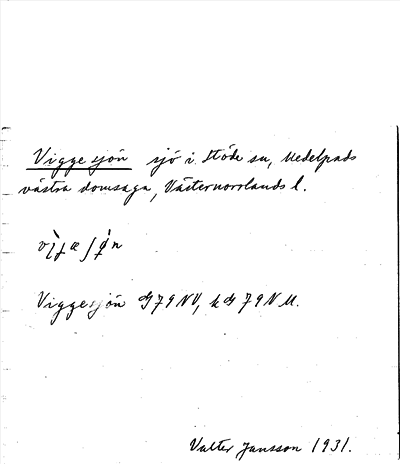 Viggesjön sjö i Stöde sn, Medelpads
västra domsaga, Västernorrlands l.
Viggesjön G79NV, kG79NU.
Valter Jansson 1931.